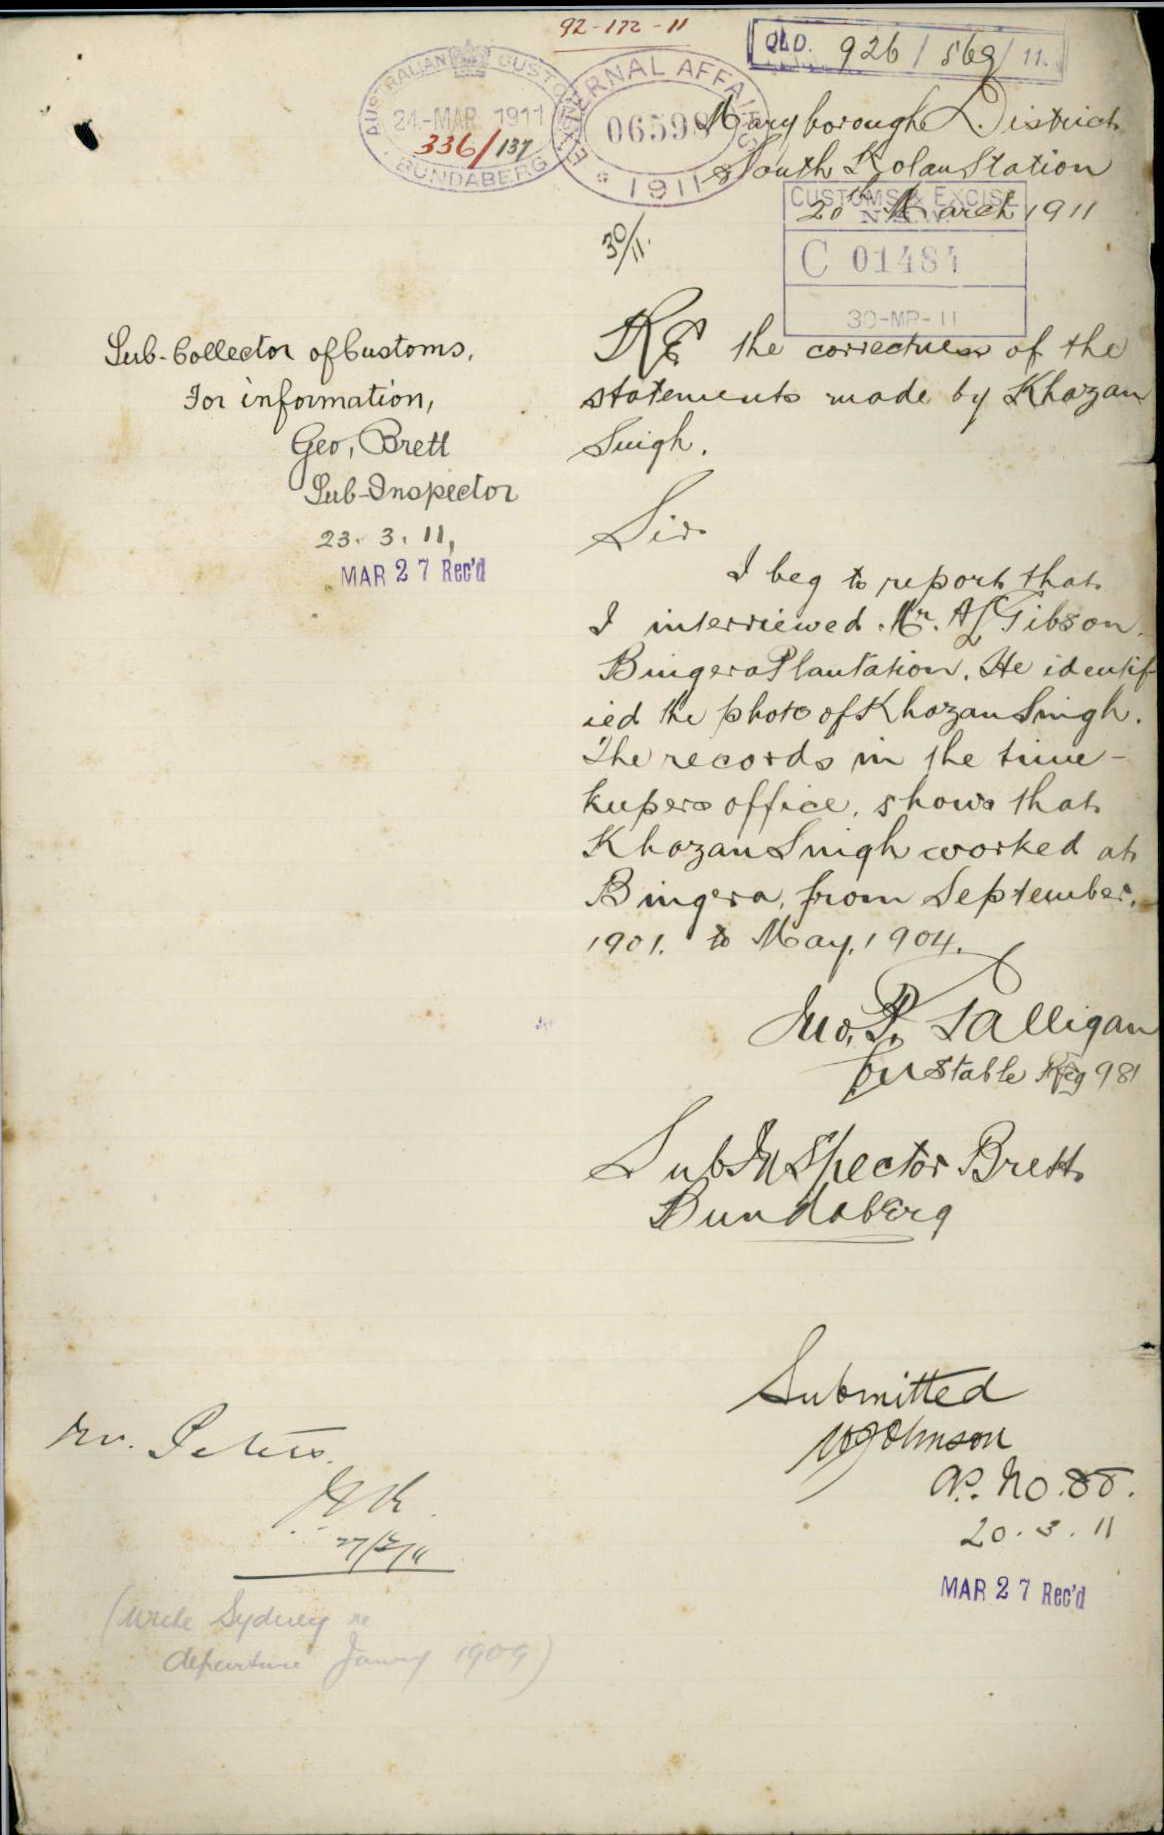 92-172-11
QLD. 926 / 569 / 11.
AUSTRALIAN CUSTOMS
24-MAR 1911
336/137
BUNDABERG
EXTERNAL AFFAIRS
1911
Maryborough District
South Kolan Station
20th March 1911
CUSTOMS & EXCISE
N.S.W.
C 01484
30-MR-11
30/11.
Sub-Collector of Customs,
For information,
Geo, Brett
Sub-Inspector
23. 3. 11,
MAR 27 Rec'd
RE the correctness of the
statements made by Khazan
Singh.
Sir
I beg to report that
I interviewed Mr. A Gibson
Bingera Plantation. He identif
ied the photo of Khazan Singh.
The records in the time-
kupers office, shows that
Khazan Singh worked at
Bingera, from September,
1901. to May, 1904.
Jno. P. Talligan
Constable Reg 981
Sub Inspector Brett
Bundaberg
Submitted
W Johnson
No. 88.
20. 3. 11
MAR 27 Rec'd
Mr. Peters.
27/3/11
(Write Sydney re
departure Jany 1909)